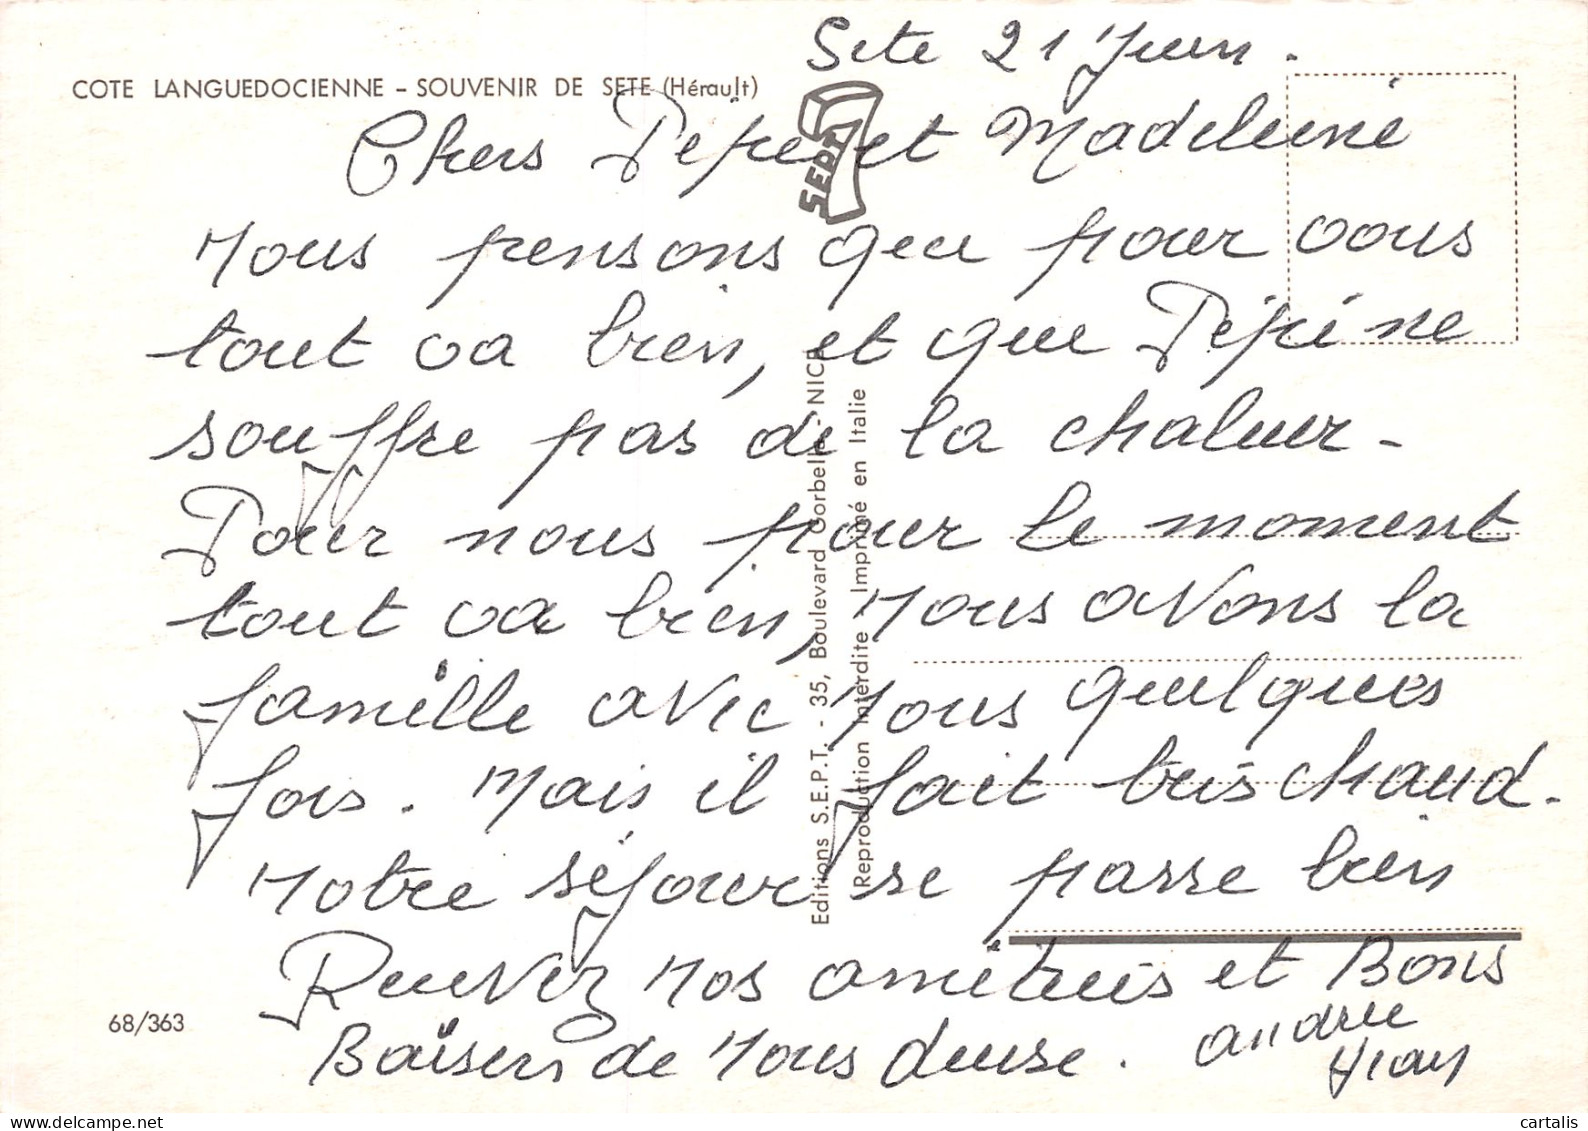 Sete 21 Juin.
COTE LANGUEDOCIENNE – SOUVENIR DE SETE (Hérault)
SEPT
Chers Pépine et Madeleine
Nous pensons que pour vous
tout va bien, et que Pépine
souffre pas de la chaleur -
Pour nous pour le moment
tout va bien, Nous avons la
famille avec nous quelques
fois. Mais il fait très chaud.
Notre séjour se passe bien
Recevez nos amitiés et Bons
Baisers de Nous deuse. andrée
68/363
Editions S.E.P.T. - 35, Boulevard Gorbella - NICE
(Reproduction interdite Imprimé en Italie
cartalis